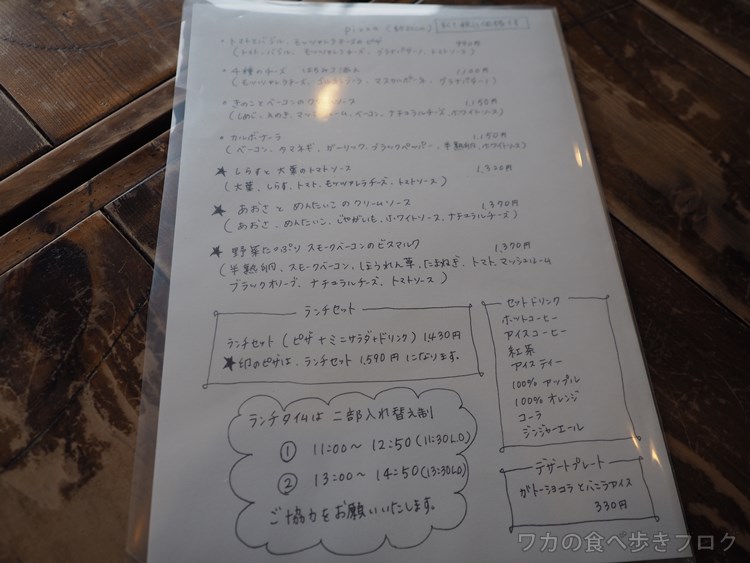 Pizza
・トマト、バジル、モッツァレラチーズのピザ
(トマト、バジル、モッツァレラチーズ、グラナパダーノ、トマトソース)
・4種のチーズ はちみつ添え
・きのことベーコンのクリームソース 1,150円
(しめじ、えのき、マッシュルーム、ベーコン、ナチュラルチーズ、ホワイトソース)
・カルボナーラ 1,150円
(ベーコン、タマネギ、ガーリック、ブラックペッパー、半熟卵、ホワイトソース)
★ しらすと大葉のトマトソース 1,320円
(大葉、しらす、トマト、モッツァレラチーズ、トマトソース)
★ あおさとめんたいこのクリームソース 1,370円
(あおさ、めんたいこ、じゃがいも、ホワイトソース、ナチュラルチーズ)
★ 野菜たっぷり スモークベーコンのビスマルク 1,370円
(半熟卵、スモークベーコン、ほうれん草、たまねぎ、トマト、マッシュルーム
ブラックオリーブ、ナチュラルチーズ、トマトソース)
ランチセット
ランチセット(ピザ+ミニサラダ+ドリンク) 1,430円
★印のピザは、ランチセット 1,590円 になります。
セットドリンク
ホットコーヒー
アイスコーヒー
紅茶
アイスティー
100% アップル
100% オレンジ
コーラ
ジンジャーエール
ランチタイムは 二部入れ替え制
① 11:00~ 12:50 (11:30L.O)
② 13:00~ 14:50 (13:30L.O)
ご協力をお願いいたします。
デザートプレート
ガトーショコラとバニラアイス
330円
ワカの食べ歩きブログ